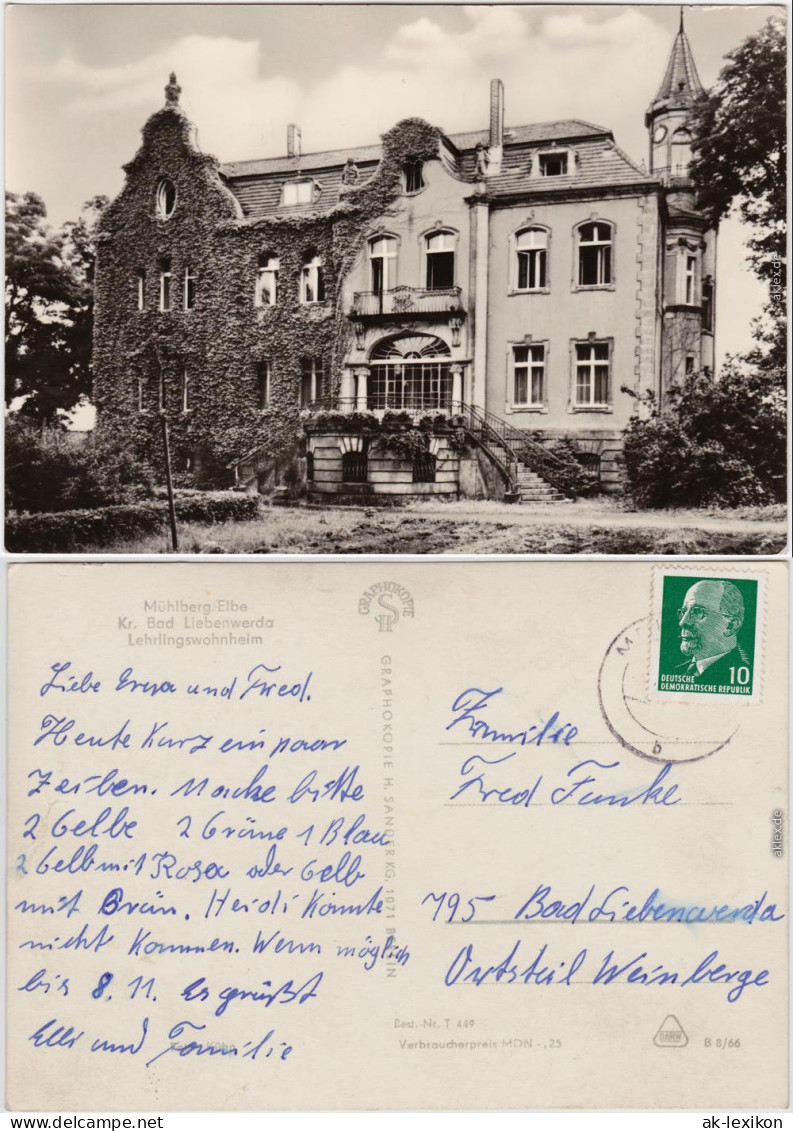 Mühlberg/Elbe
Kr. Bad Liebenwerda
Lehrlingswohnheim
Liebe Erna und Fred.
Heute Kurz ein paar
Zeilen. Macke bitte
2 Gelbe 2 Grüne 1 Blau
2 Gelb mit Rosa oder Gelb
mit Brün. Heidi Konnte
nicht Kommen. Wenn möglich
bis 8. 11. Es grüßt
Elli und Familie
GRAPHOKOPIE
GRAPHOKOPIE H. SANDER KG, 1071 BERLIN
DEUTSCHE
DEMOKRATISCHE REPUBLIK
10
M
b
Familie
Fred Funke
795 Bad Liebenwerda
Ortsteil Weinberge
Best.-Nr. T 449
Verbraucherpreis MDN -,25
B 8/66
aklex.de
aklex.de
ak-lexikon